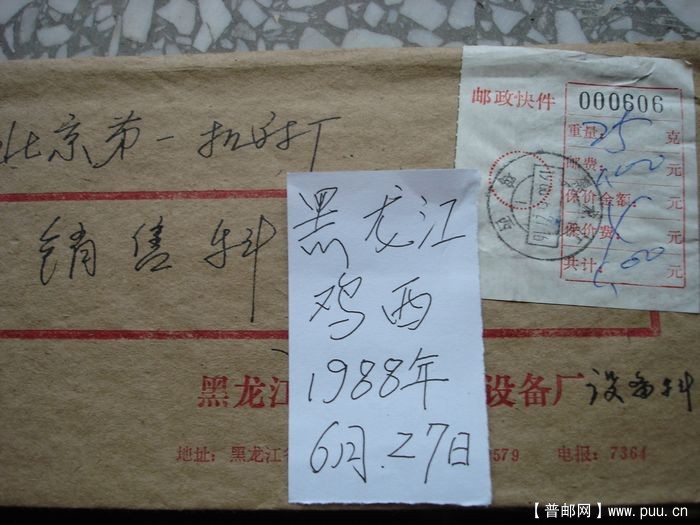 北京第一机床厂
销售科
邮政快件
000606
重量: 25 克
邮费: 元
保价金额: 元
保价费: 元
共计: 元
黑龙江
鸡西
1988年
6月.27日
黑龙江 设备厂 设备科
地址: 黑龙江省 2579 电报: 7364
【普邮网】www.puu.cn